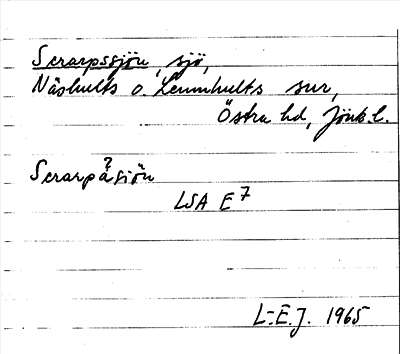 Scrarpssjön, sjö,
Näshults o. Lemnhults snr,
Östra hd, Jönk. l.
Scrarpåsjön
?
LSA E7
L-E.J. 1965